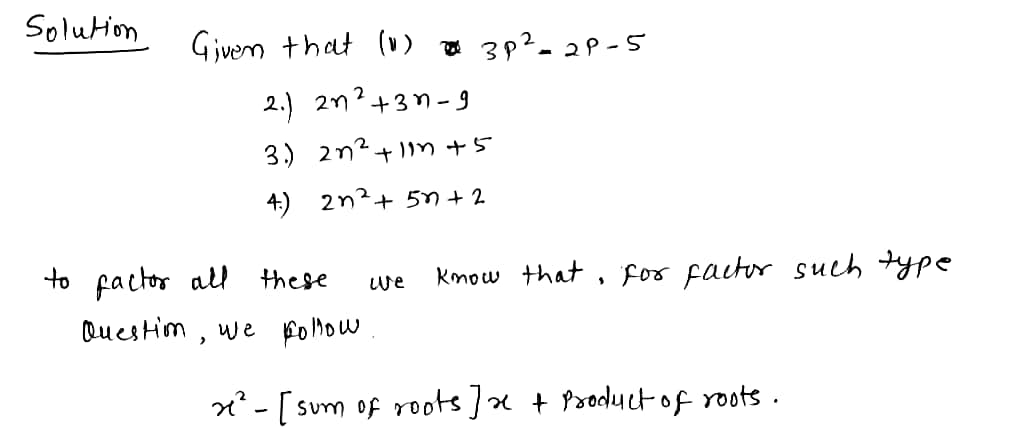 Solution
Given that (1) 3p² - 2p - 5
2.) 2n² + 3n - 9
3.) 2n² + 11n + 5
4.) 2n² + 5n + 2
to factor all these we know that, for factor such type
Question, we follow.
x² - [sum of roots]x + Product of roots.